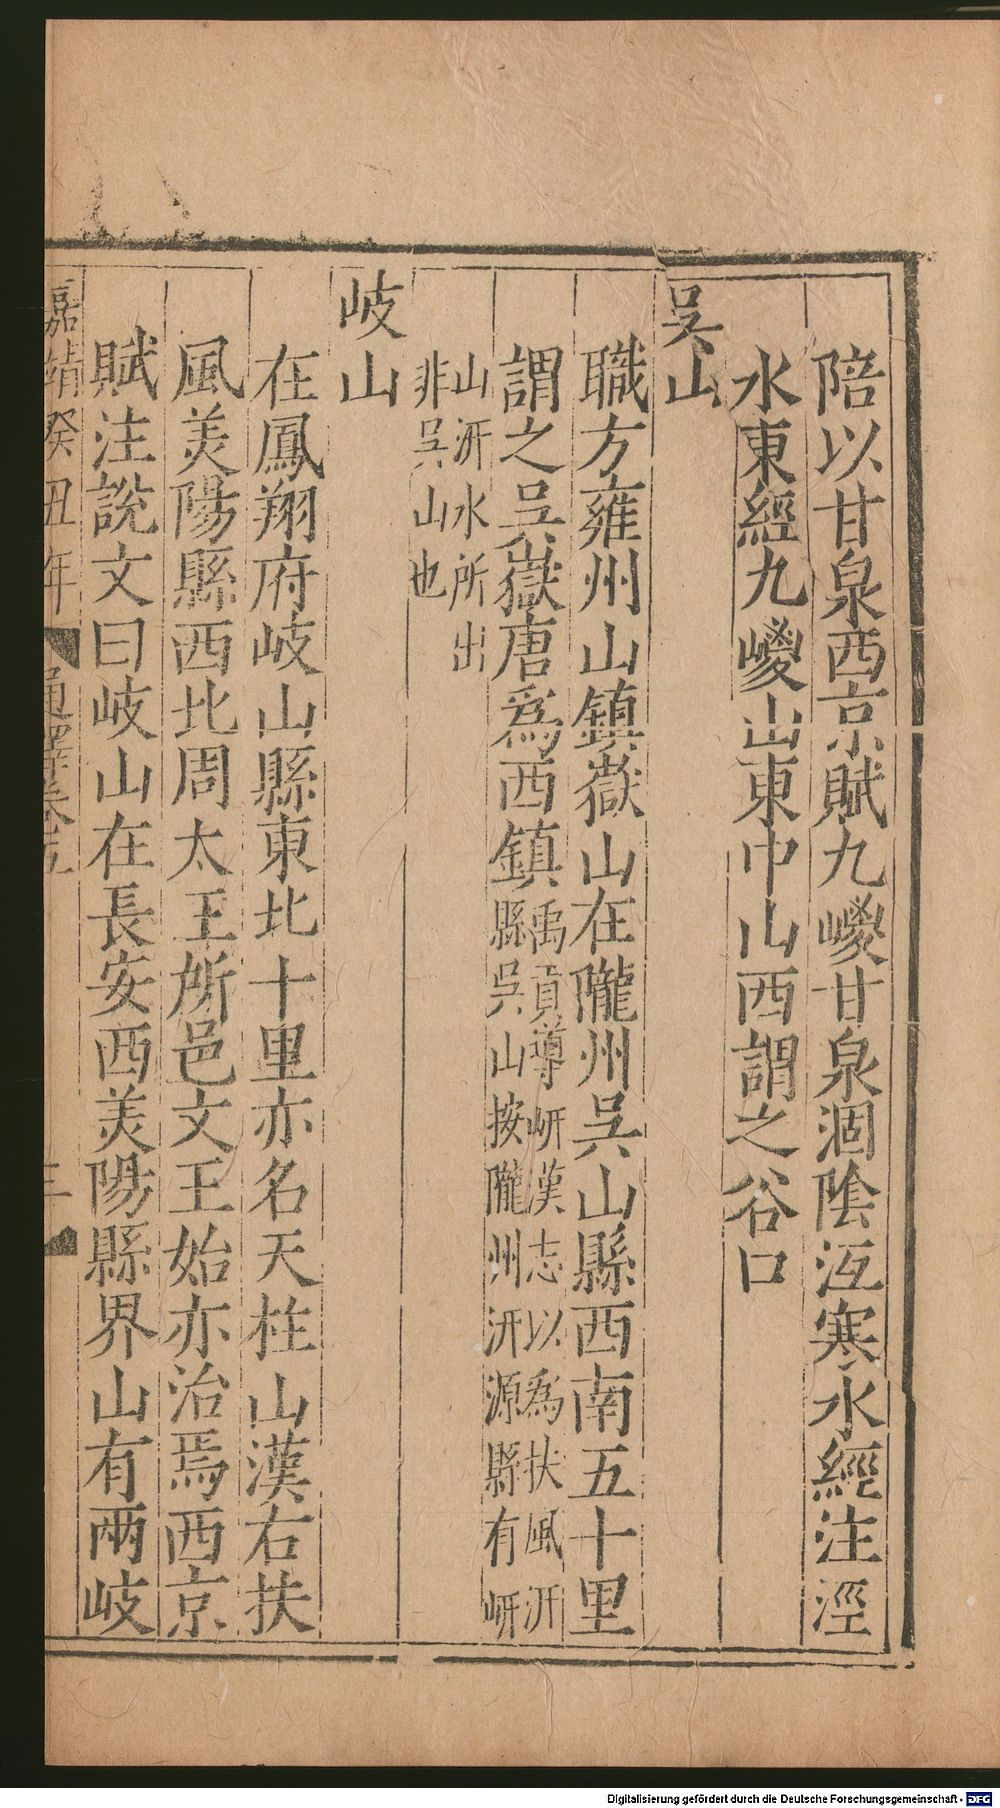 陪以甘泉西京賦九嵕甘泉涸陰沍寒水經注涇
水東經九嵕山東中山西謂之谷口
吳山
職方雍州山鎮嶽山在隴州吳山縣西南五十里
謂之吳嶽唐爲西鎮禹貢導岍漢志以爲扶風汧
縣吳山按隴州汧源縣有岍
山汧水所出
非吳山也
岐山
在鳳翔府岐山縣東北十里亦名天柱山漢右扶
風美陽縣西北周太王所邑文王始亦治焉西京
賦注說文曰岐山在長安西美陽縣界山有兩岐
嘉靖癸丑年
通釋卷五
三
Digitalisierung gefördert durch die Deutsche Forschungsgemeinschaft - DFG